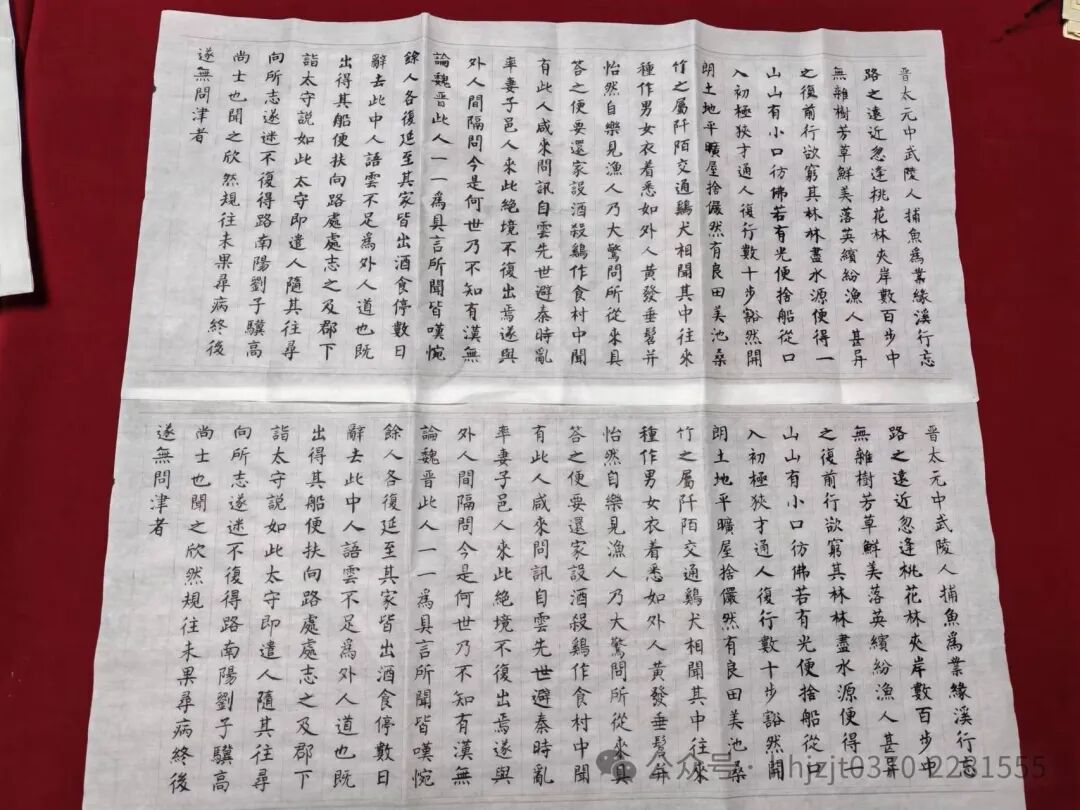 晋太元中武陵人捕魚爲業緣溪行忘
路之遠近忽逢桃花林夾岸數百步中
無雜樹芳草鮮美落英繽紛漁人甚异
之復前行欲窮其林林盡水源便得一
山山有小口彷佛若有光便捨船從口
入初極狹才通人復行數十步豁然開
朗土地平曠屋捨儼然有良田美池桑
竹之屬阡陌交通鷄犬相聞其中往來
種作男女衣着悉如外人黃發垂髫并
怡然自樂見漁人乃大驚問所從來具
答之便要還家設酒殺鷄作食村中聞
有此人咸來問訊自雲先世避秦時亂
率妻子邑人來此絕境不復出焉遂與
外人間隔問今是何世乃不知有漢無
論魏晋此人一一爲具言所聞皆嘆惋
餘人各復延至其家皆出酒食停數日
辭去此中人語雲不足爲外人道也既
出得其船便扶向路處處志之及郡下
詣太守説如此太守即遣人隨其往尋
向所志遂迷不復得路南陽劉子驥高
尚士也聞之欣然規往未果尋病終後
遂無問津者
晋太元中武陵人捕魚爲業緣溪行忘
路之遠近忽逢桃花林夾岸數百步中
無雜樹芳草鮮美落英繽紛漁人甚异
之復前行欲窮其林林盡水源便得一
山山有小口彷佛若有光便捨船從口
入初極狹才通人復行數十步豁然開
朗土地平曠屋捨儼然有良田美池桑
竹之屬阡陌交通鷄犬相聞其中往來
種作男女衣着悉如外人黃發垂髫并
怡然自樂見漁人乃大驚問所從來具
答之便要還家設酒殺鷄作食村中聞
有此人咸來問訊自雲先世避秦時亂
率妻子邑人來此絕境不復出焉遂與
外人間隔問今是何世乃不知有漢無
論魏晋此人一一爲具言所聞皆嘆惋
餘人各復延至其家皆出酒食停數日
辭去此中人語雲不足爲外人道也既
出得其船便扶向路處處志之及郡下
詣太守説如此太守即遣人隨其往尋
向所志遂迷不復得路南陽劉子驥高
尚士也聞之欣然規往未果尋病終後
遂無問津者